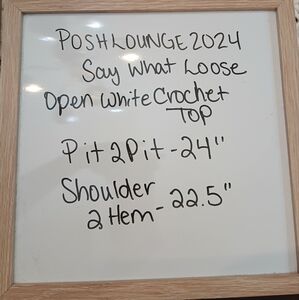 POSHLOUNGE2024
Say What Loose
Open White Crochet
TOP
Pit2Pit-24"
Shoulder
2 Hem-22.5"